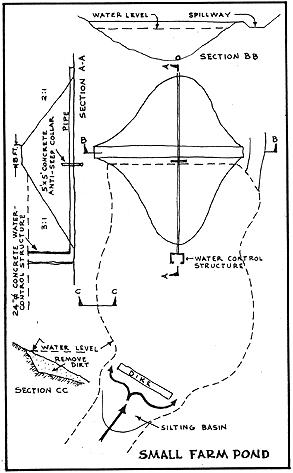 WATER LEVEL
SPILLWAY
SECTION BB
A
SECTION A-A
2:1
PIPE
8 FT.
5'x5' CONCRETE
ANTI-SEEP COLLAR
3:1
24"Ø CONCRETE WATER-
CONTROL STRUCTURE
B
B
WATER CONTROL
STRUCTURE
A
C
C
WATER LEVEL
REMOVE
DIRT
SECTION CC
DIKE
SILTING BASIN
SMALL FARM POND